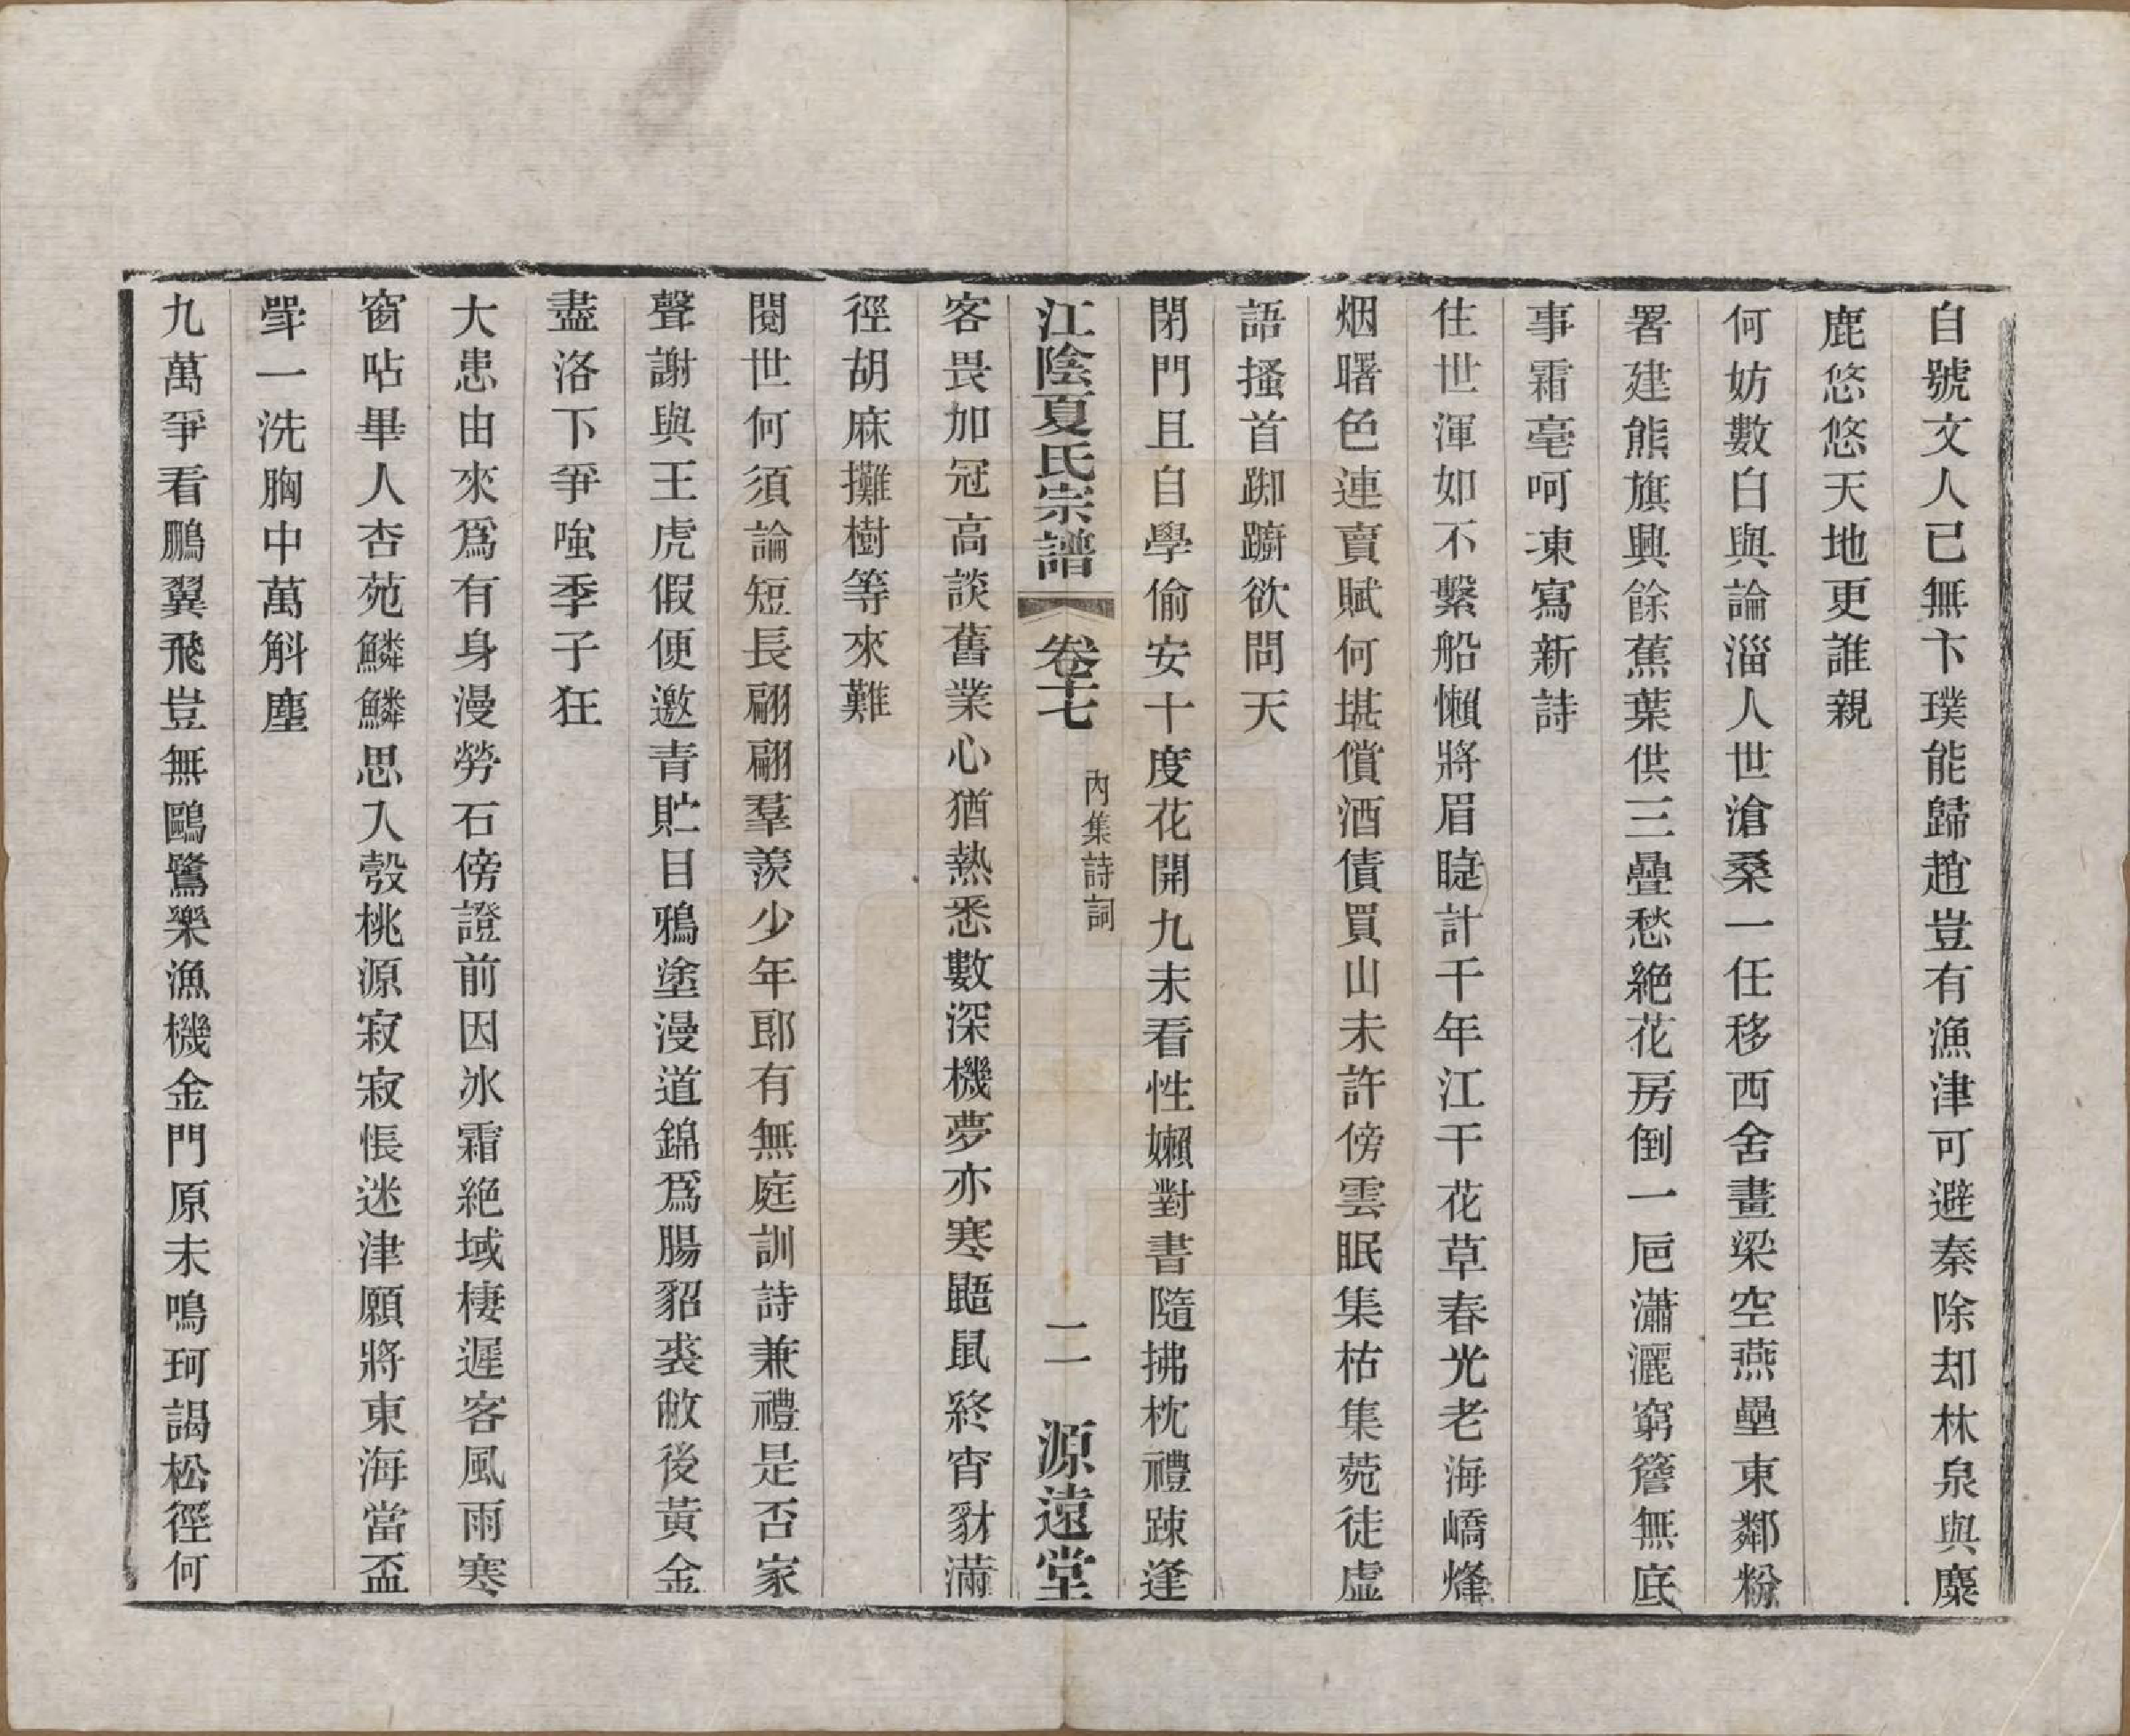 自號文人已無卞璞能歸趙豈有漁津可避秦除却林泉與麋
鹿悠悠天地更誰親
何妨數白與論淄人世滄桑一任移西舍畫梁空燕壘東鄰粉
署建熊旗興餘蕉葉供三疊愁絶花房倒一巵瀟灑窮簷無底
事霜毫呵凍寫新詩
住世渾如不繫船懶將眉睫計千年江干花草春光老海嶠烽
烟曙色連賣賦何堪償酒債買山未許傍雲眠集枯集菀徒虛
語搔首踟躕欲問天
閉門且自學偷安十度花開九未看性嬾對書隨拂枕禮踈逢
江陰夏氏宗譜
卷十七
內集詩詞
二
源遠堂
客畏加冠高談舊業心猶熱悉數深機夢亦寒鼯鼠終宵豺滿
徑胡麻攤樹等來難
閱世何須論短長翩翩羣羨少年郎有無庭訓詩兼禮是否家
聲謝與王虎假便邀青貯目鴉塗漫道錦爲腸貂裘敝後黃金
盡洛下爭嗤季子狂
大患由來爲有身漫勞石傍證前因冰霜絶域棲遲客風雨寒
窗呫畢人杏苑鱗鱗思入彀桃源寂寂悵迷津願將東海當盃
斝一洗胸中萬斛塵
九萬爭看鵬翼飛豈無鷗鷺樂漁機金門原未鳴珂謁松徑何